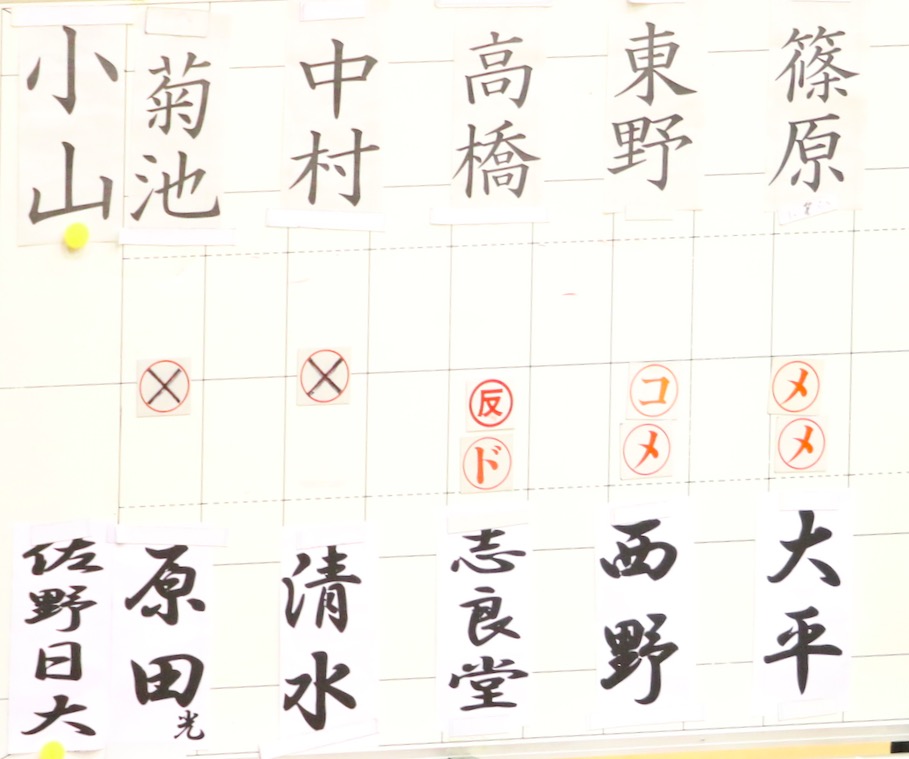 小山
菊池
中村
高橋
東野
篠原
反 コ メ
ド メ メ
佐野日大
原田光
清水
志良堂
西野
大平